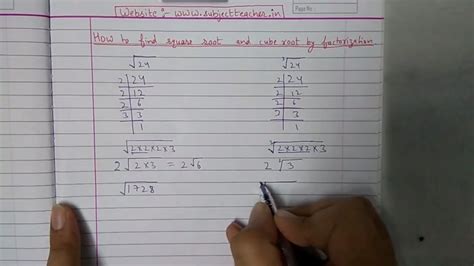 Website :- www.subjectteacher.in
Page No.:
How to find square root and cube root by factorization
√24
2 | 24
2 | 12
2 | 6
3 | 3
1
√2×2×2×3
2√2×3 = 2√6
√1728
∛24
2 | 24
2 | 12
2 | 6
3 | 3
1
∛2×2×2×3
2∛3